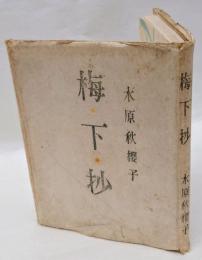 梅・下・抄
水原秋櫻子
梅下抄
水原秋櫻子